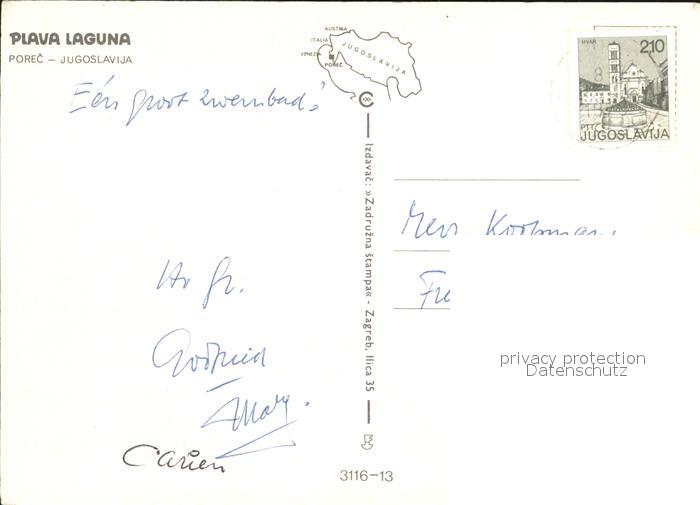 PLAVA LAGUNA
POREČ – JUGOSLAVIJA
AUSTRIA
ITALIA
VENEZIA
POREČ
JUGOSLAVIJA
HVAR
2,10
PTT
JUGOSLAVIJA
Eén groot zwembad!
Izdavač: »Zadružna štampa« - Zagreb, Ilica 35
Mevr Kooiman
Fre
Htr gr.
Carien
privacy protection
Datenschutz
3116-13